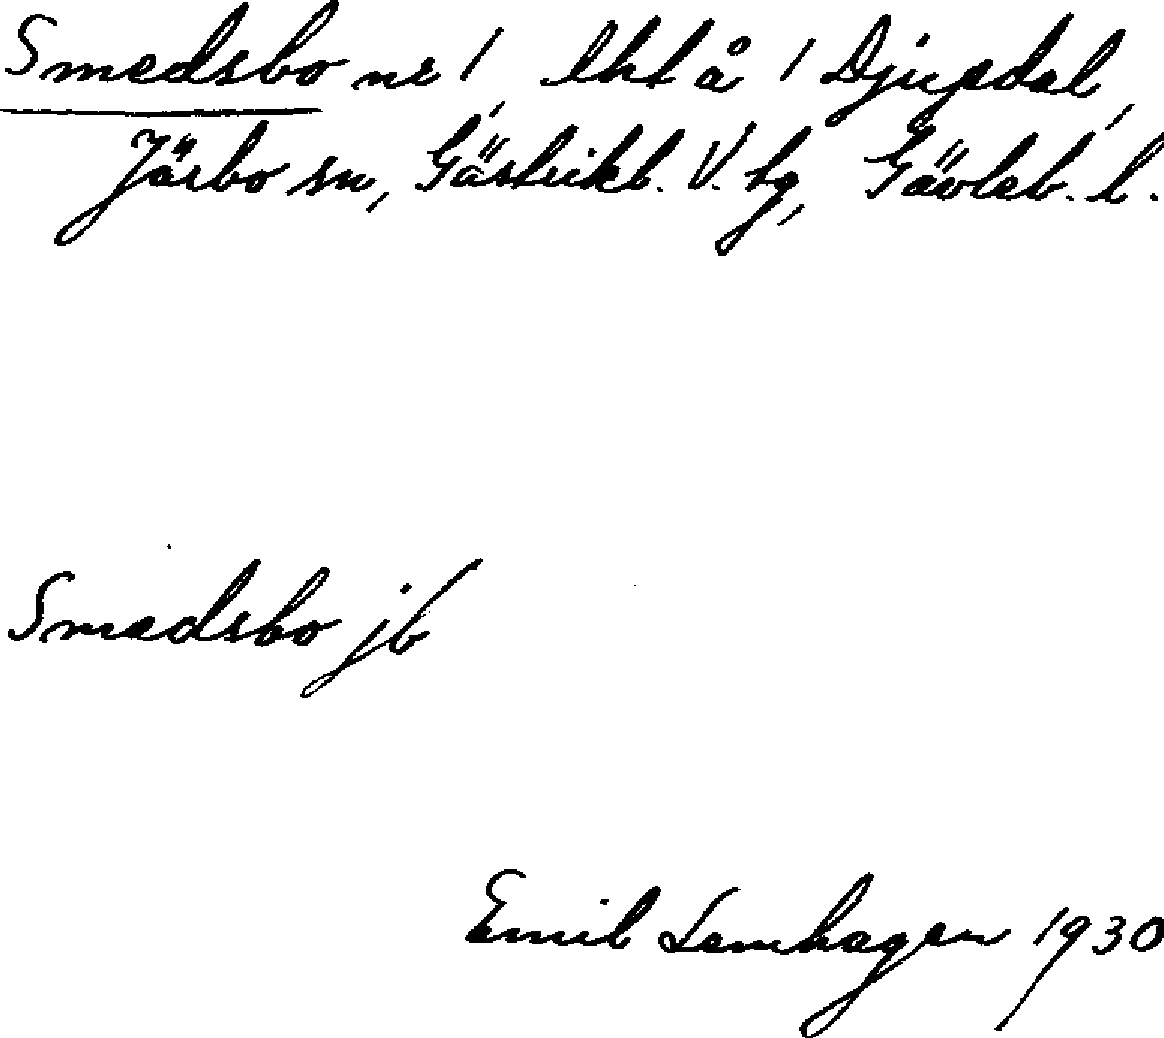 Smedsbo nr 1, lht å 1 Djupdal,
Järbo sn, Gästrikl. V. tg, Gävleb. l.
Smedsbo jb
Emil Lemhagen 1930